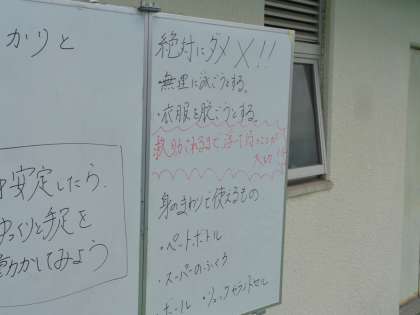 かりと
安定したら、
ゆっくりと手足を
動かしてみよう
絶対にダメ×!!
・無理に泳ごうとする。
・衣服を脱ごうとする。
救助されるまで浮て待つことが
大切!!
身のまわりで使えるもの
・ペットボトル
・スーパーのふくろ
・ボール ・リュック、ランドセル